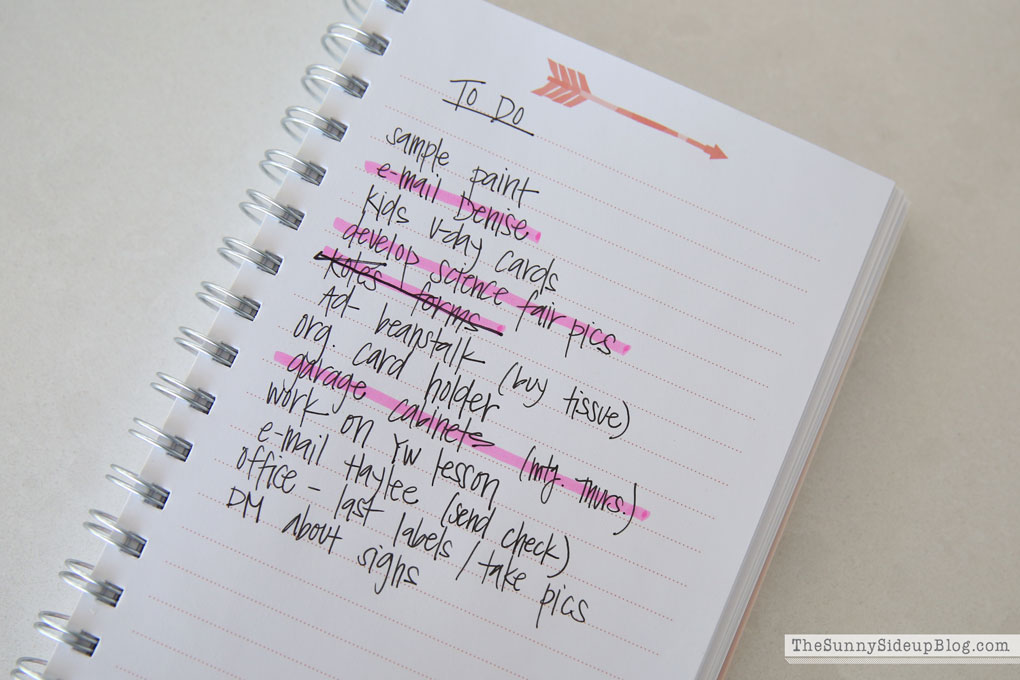 TO DO
sample paint
e-mail Denise
kids v-day cards
develop science fair pics
Kates forms
Ad- beanstalk (buy tissue)
org. card holder
garage cabinets (mtg. Thurs.)
work on YW lesson
e-mail Haylee (send check)
office - last labels / take pics
DM about signs
TheSunnySideupBlog.com